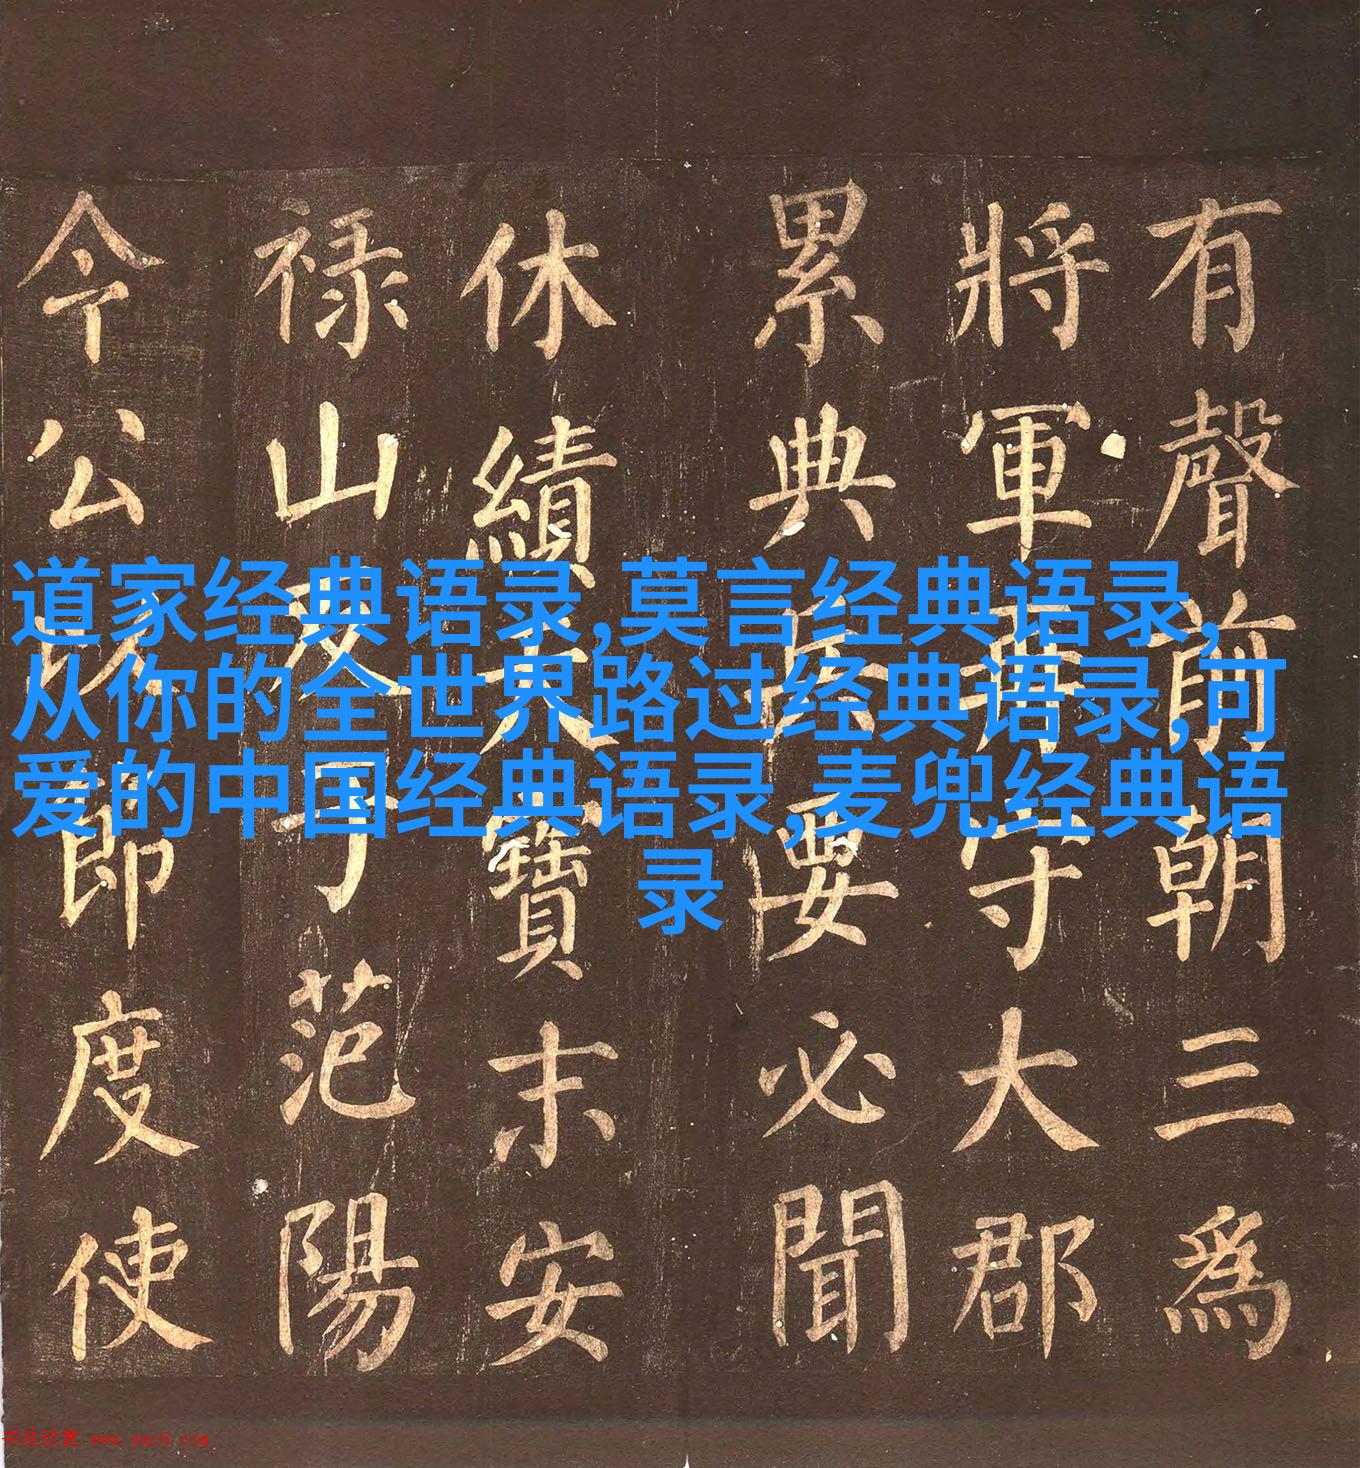 道家经典语录,莫言经典语录,
从你的全世界路过经典语录,可
爱的中国经典语录,麦兜经典语
录
有聲前朝三為
將軍再守大郡
累典兵要必聞
休績天寶末安
禄山反于范陽
令公以節度使
书法欣赏 www.yac8.com